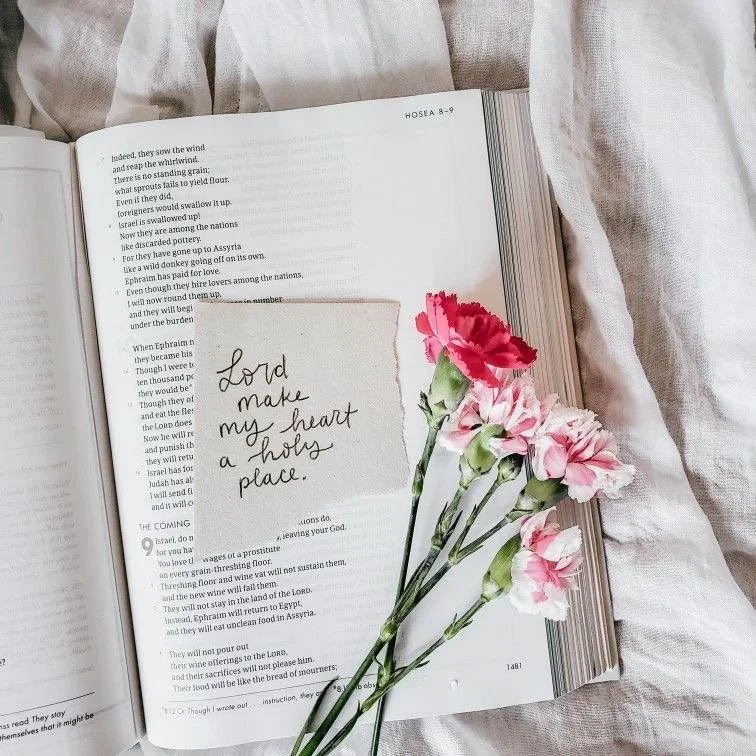 HOSEA 8–9
Indeed, they sow the wind
and reap the whirlwind.
There is no standing grain;
what sprouts fails to yield flour.
Even if they did,
foreigners would swallow it up.
8 Israel is swallowed up!
Now they are among the nations
like discarded pottery.
9 For they have gone up to Assyria
like a wild donkey going off on its own.
Ephraim has paid for love.
10 Even though they hire lovers among the nations,
I will now round them up,
and they will begi in number
under the burden
11 When Ephraim
they became his
12 Though I were to
ten thousand po
they would be
13 Though they of
and eat the fles
the LORD does
Now he will re
and punish th
they will retu
14 Israel has for
Judah has al
I will send fi
and it will c
Lord
make
my heart
a holy
place.
THE COMING
9 Israel, do n
for you ha leaving your God.
You love th wages of a prostitute
on every grain-threshing floor.
2 Threshing floor and wine vat will not sustain them,
and the new wine will fail them.
3 They will not stay in the land of the LORD.
Instead, Ephraim will return to Egypt,
and they will eat unclean food in Assyria.
4 They will not pour out
their wine offerings to the LORD,
and their sacrifices will not please him.
Their food will be like the bread of mourners;
1481
8:12 Or Though I wrote out . . . instruction, they
ss read They stay
themselves that it might be